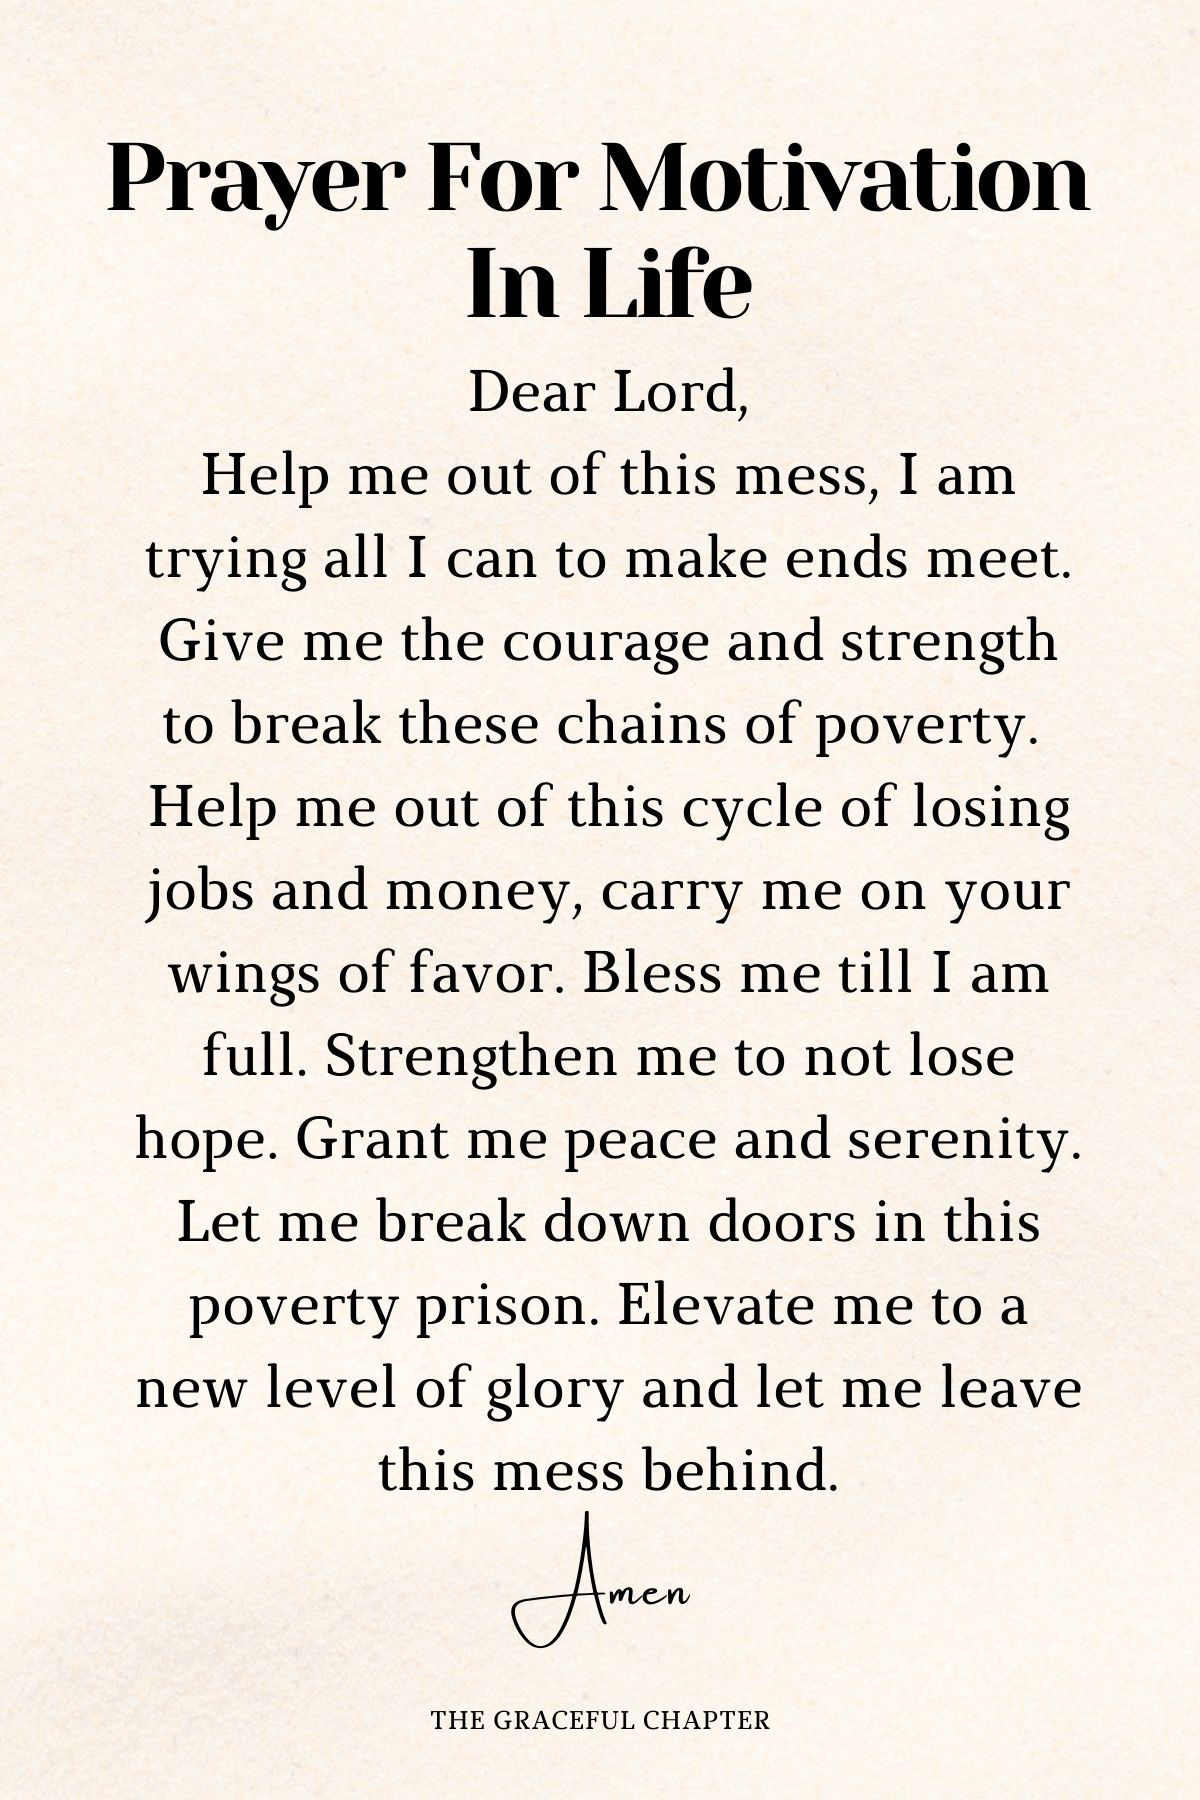 Prayer For Motivation
In Life
Dear Lord,
Help me out of this mess, I am
trying all I can to make ends meet.
Give me the courage and strength
to break these chains of poverty.
Help me out of this cycle of losing
jobs and money, carry me on your
wings of favor. Bless me till I am
full. Strengthen me to not lose
hope. Grant me peace and serenity.
Let me break down doors in this
poverty prison. Elevate me to a
new level of glory and let me leave
this mess behind.
Amen
THE GRACEFUL CHAPTER